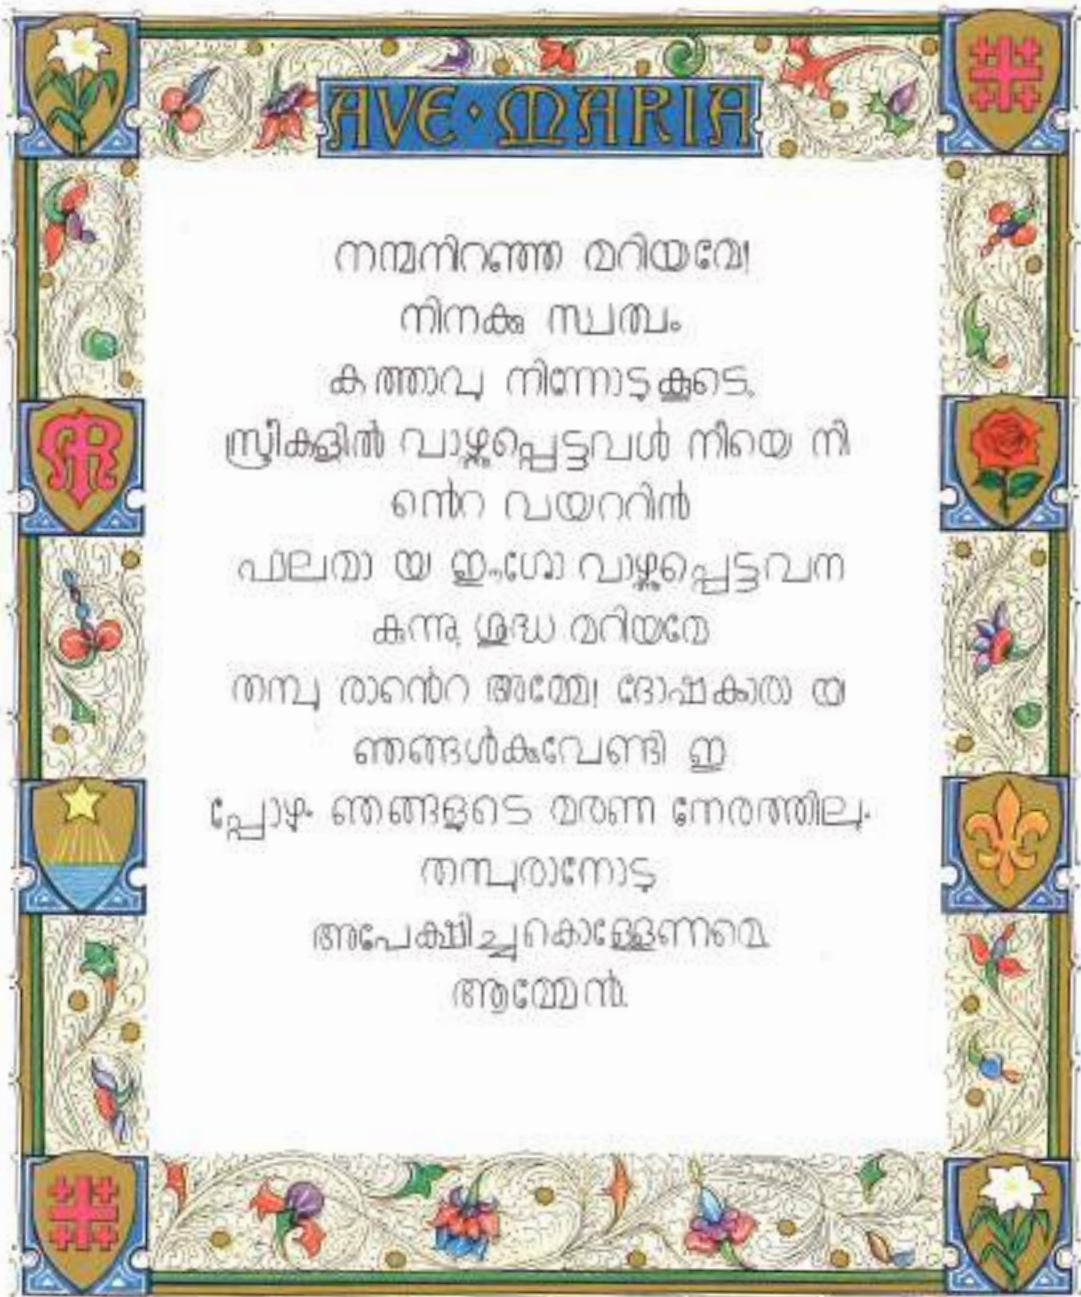 AVE·MARIA
നന്മനിറഞ്ഞ മറിയമേ!
നിനക്കു സ്വത്ഥം
കത്താവു നിന്നോടുകൂടെ.
സ്ത്രീകളിൽ വാഴ്ത്തപ്പെട്ടവൾ നീയെ നി
ൻെറ വയററിൻ
ഫലമാ യ ഈശോ വാഴ്ത്തപ്പെട്ടവന
കുന്നു. ശുദ്ധ മറിയമേ
തമ്പു രാൻെറ അമ്മേ! ദോഷകാരാ യ
ഞങ്ങൾക്കുവേണ്ടി ഇ
പ്പോഴും ഞങ്ങളുടെ മരണ നേരത്തിലും
തമ്പുരാനോടു
അപേക്ഷിച്ചുകൊള്ളേണമെ.
ആമ്മേൻ.